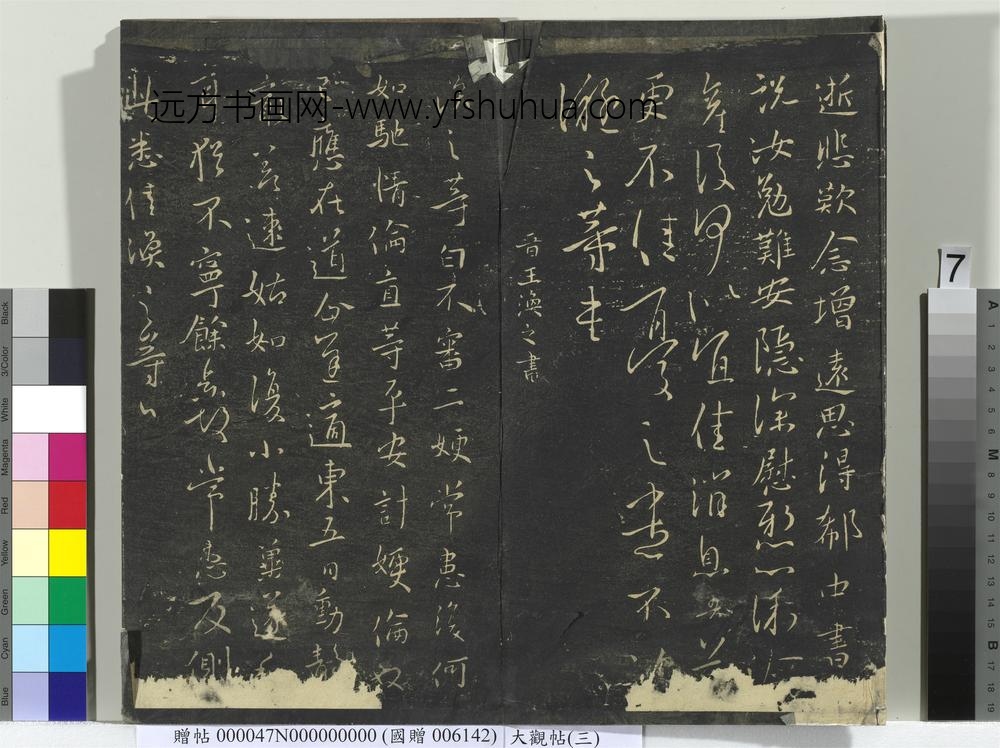 远方书画网-www.yfshuhua.com
逝悲歎念增遠思得郗中書
說汝勉難安隱深慰懸心
產後何似宜佳消息吾
更不佳憂之遣不
凝之等書
晉王渙之書
之等白不審二嫂常患復何
如馳情倫直等平安計嫂倫奴
應在道適東五日動靜
若速姑如復小勝藥遂
猶不寧餘常患反側
悉佳渙之等白
7
Black
3/Color
White
Magenta
Red
Yellow
Green
Cyan
Blue
A
1
2
3
4
5
6
M
8
9
10
11
12
13
14
15
B
17
18
19
贈帖 000047N000000000 (國贈 006142) 大觀帖(三)